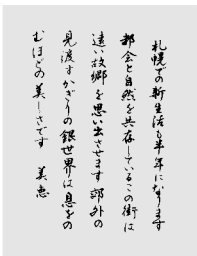 札幌での新生活も半年になります
都会と自然を共存しているこの街は
遠い故郷を思い出させます 郊外の
見渡すかぎりの銀世界は息をの
むほどの美しさです 美恵